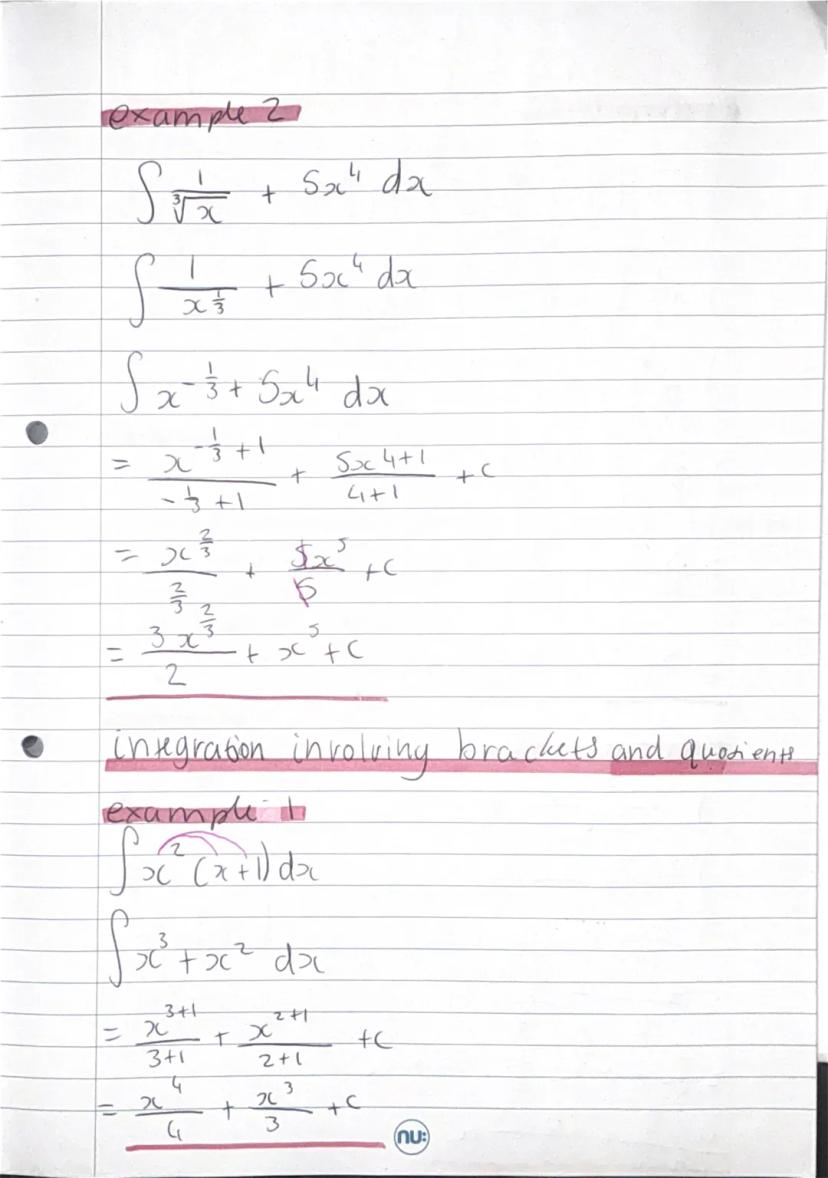 example 2
∫ 1/∛x + 5x⁴ dx
∫ 1/x^(1/3) + 5x⁴ dx
∫ x^(-1/3) + 5x⁴ dx
= x^(-1/3 + 1)/(-1/3 + 1) + 5x^(4+1)/(4+1) + c
= x^(2/3)/(2/3) + 5x⁵/5 + c
= 3x^(2/3)/2 + x⁵ + c
integration involving brackets and quotients
example 1
∫ x² (x+1) dx
∫ x³ + x² dx
= x^(3+1)/(3+1) + x^(2+1)/(2+1) + c
= x⁴/4 + x³/3 + c
nu: